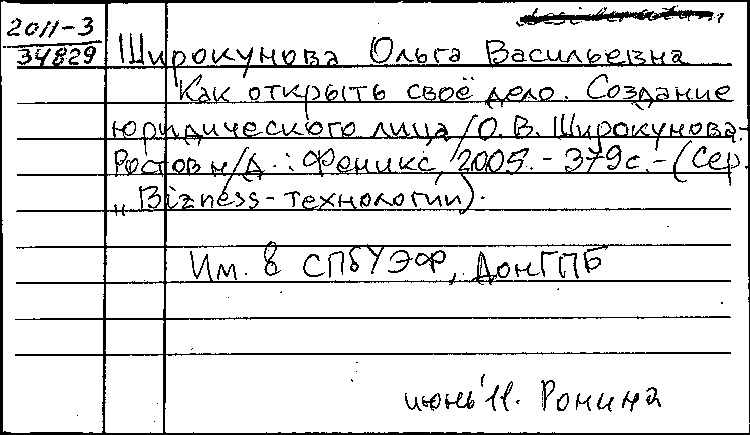 desideratum
2011-3
34829
Широкунова Ольга Васильевна
Как открыть своё дело. Создание
юридического лица / О. В. Широкунова.-
Ростов н/Д. : Феникс, 2005. - 379 с. - (Сер.
„Bizness - технологии).
Им. в СПбУЭФ, ДонГПБ
июнь'11. Ронина